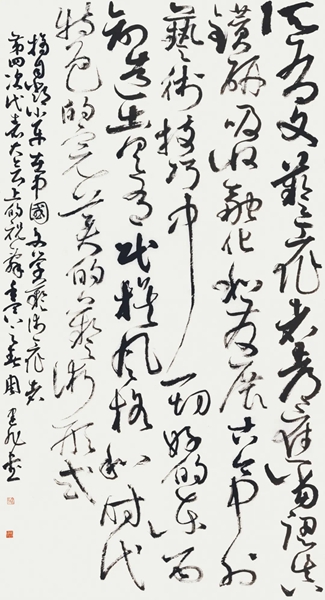 一切文艺工作者都应当认真
钻研吸收融化和发展古今中外
艺术技巧中一切好的东西
创造出具有民族风格和时代
特色的完美的艺术形式
摘自邓小平在中国文学艺术工作者
第四次代表大会上的祝辞